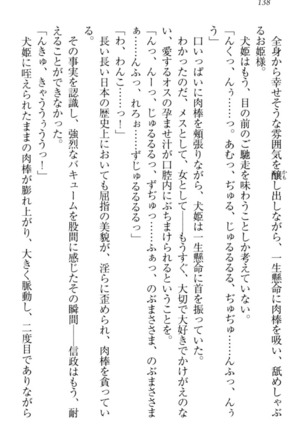 138
全身から幸せそうな雰囲気を醸し出しながら、一生懸命に肉棒を吸い、舐めしゃぶ
るお姫様。
犬姫はもう、目の前のご馳走を味わうことしか考えていない。
「んくっ、んぅ……っ。あむっ、ぢゅる、じゅるるるる、ぢゅぢゅ……んふっ、
口いっぱいに肉棒を頬張りながら、犬姫は一生懸命に首を振っていた。
わかったのだ。メスとして、女として――もうすぐ、大切で大好きでかけがえのな
い、愛するオスの孕ませ汁が口腔内にぶちまけられるということを。
「んっ、んーっ、じゅるるるっ、ずぢゅっ……ふぁっ、のぶまささま、のぶまささま、
ぁ……んふっ、れろぉ……ずじゅるるるるっ」
「わ、わんこ……っ！」
長い長い日本の歴史上においても屈指の美貌が、淫らに歪められ、肉棒を貪ってい
る。
その事実を認識し、強烈なバキュームを股間に感じたその瞬間――信政はもう、耐
えることができなかった。
「んきゅ、きゃうううぅうっ！」
犬姫に咥えられたままの肉棒が膨れ上がり、大きく脈動し、二度目でありながら